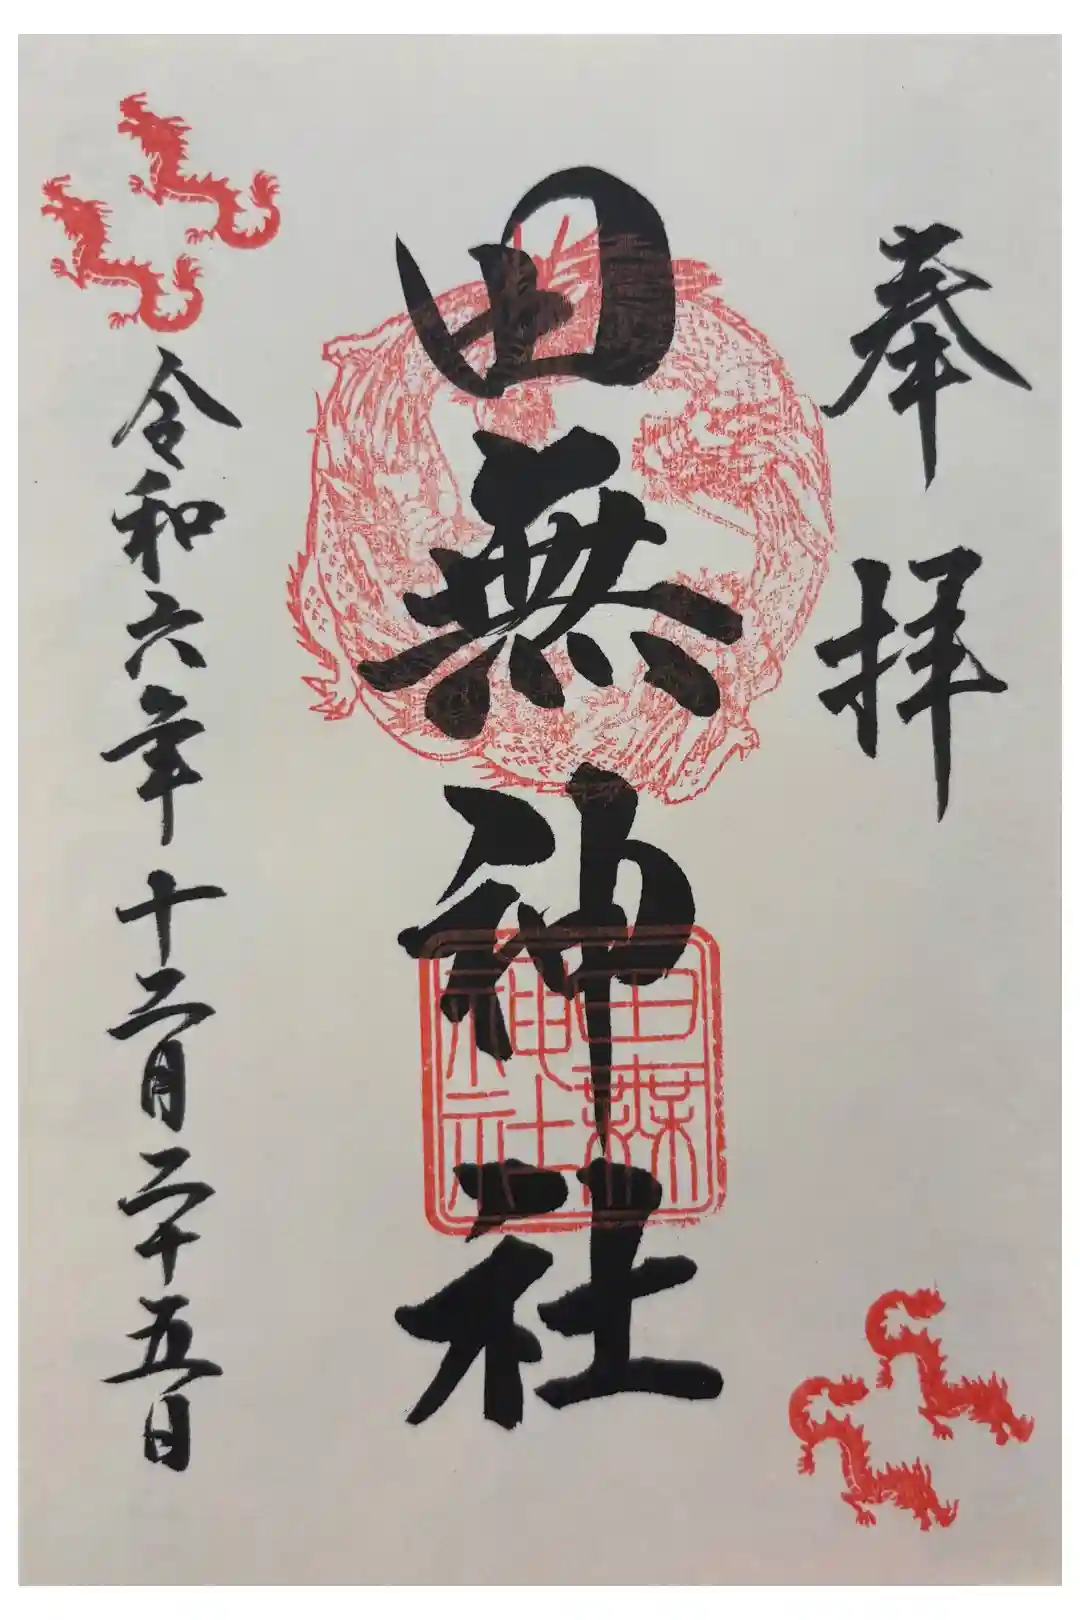 奉拝
田無神社
田無
神社
令和六年十二月二十五日